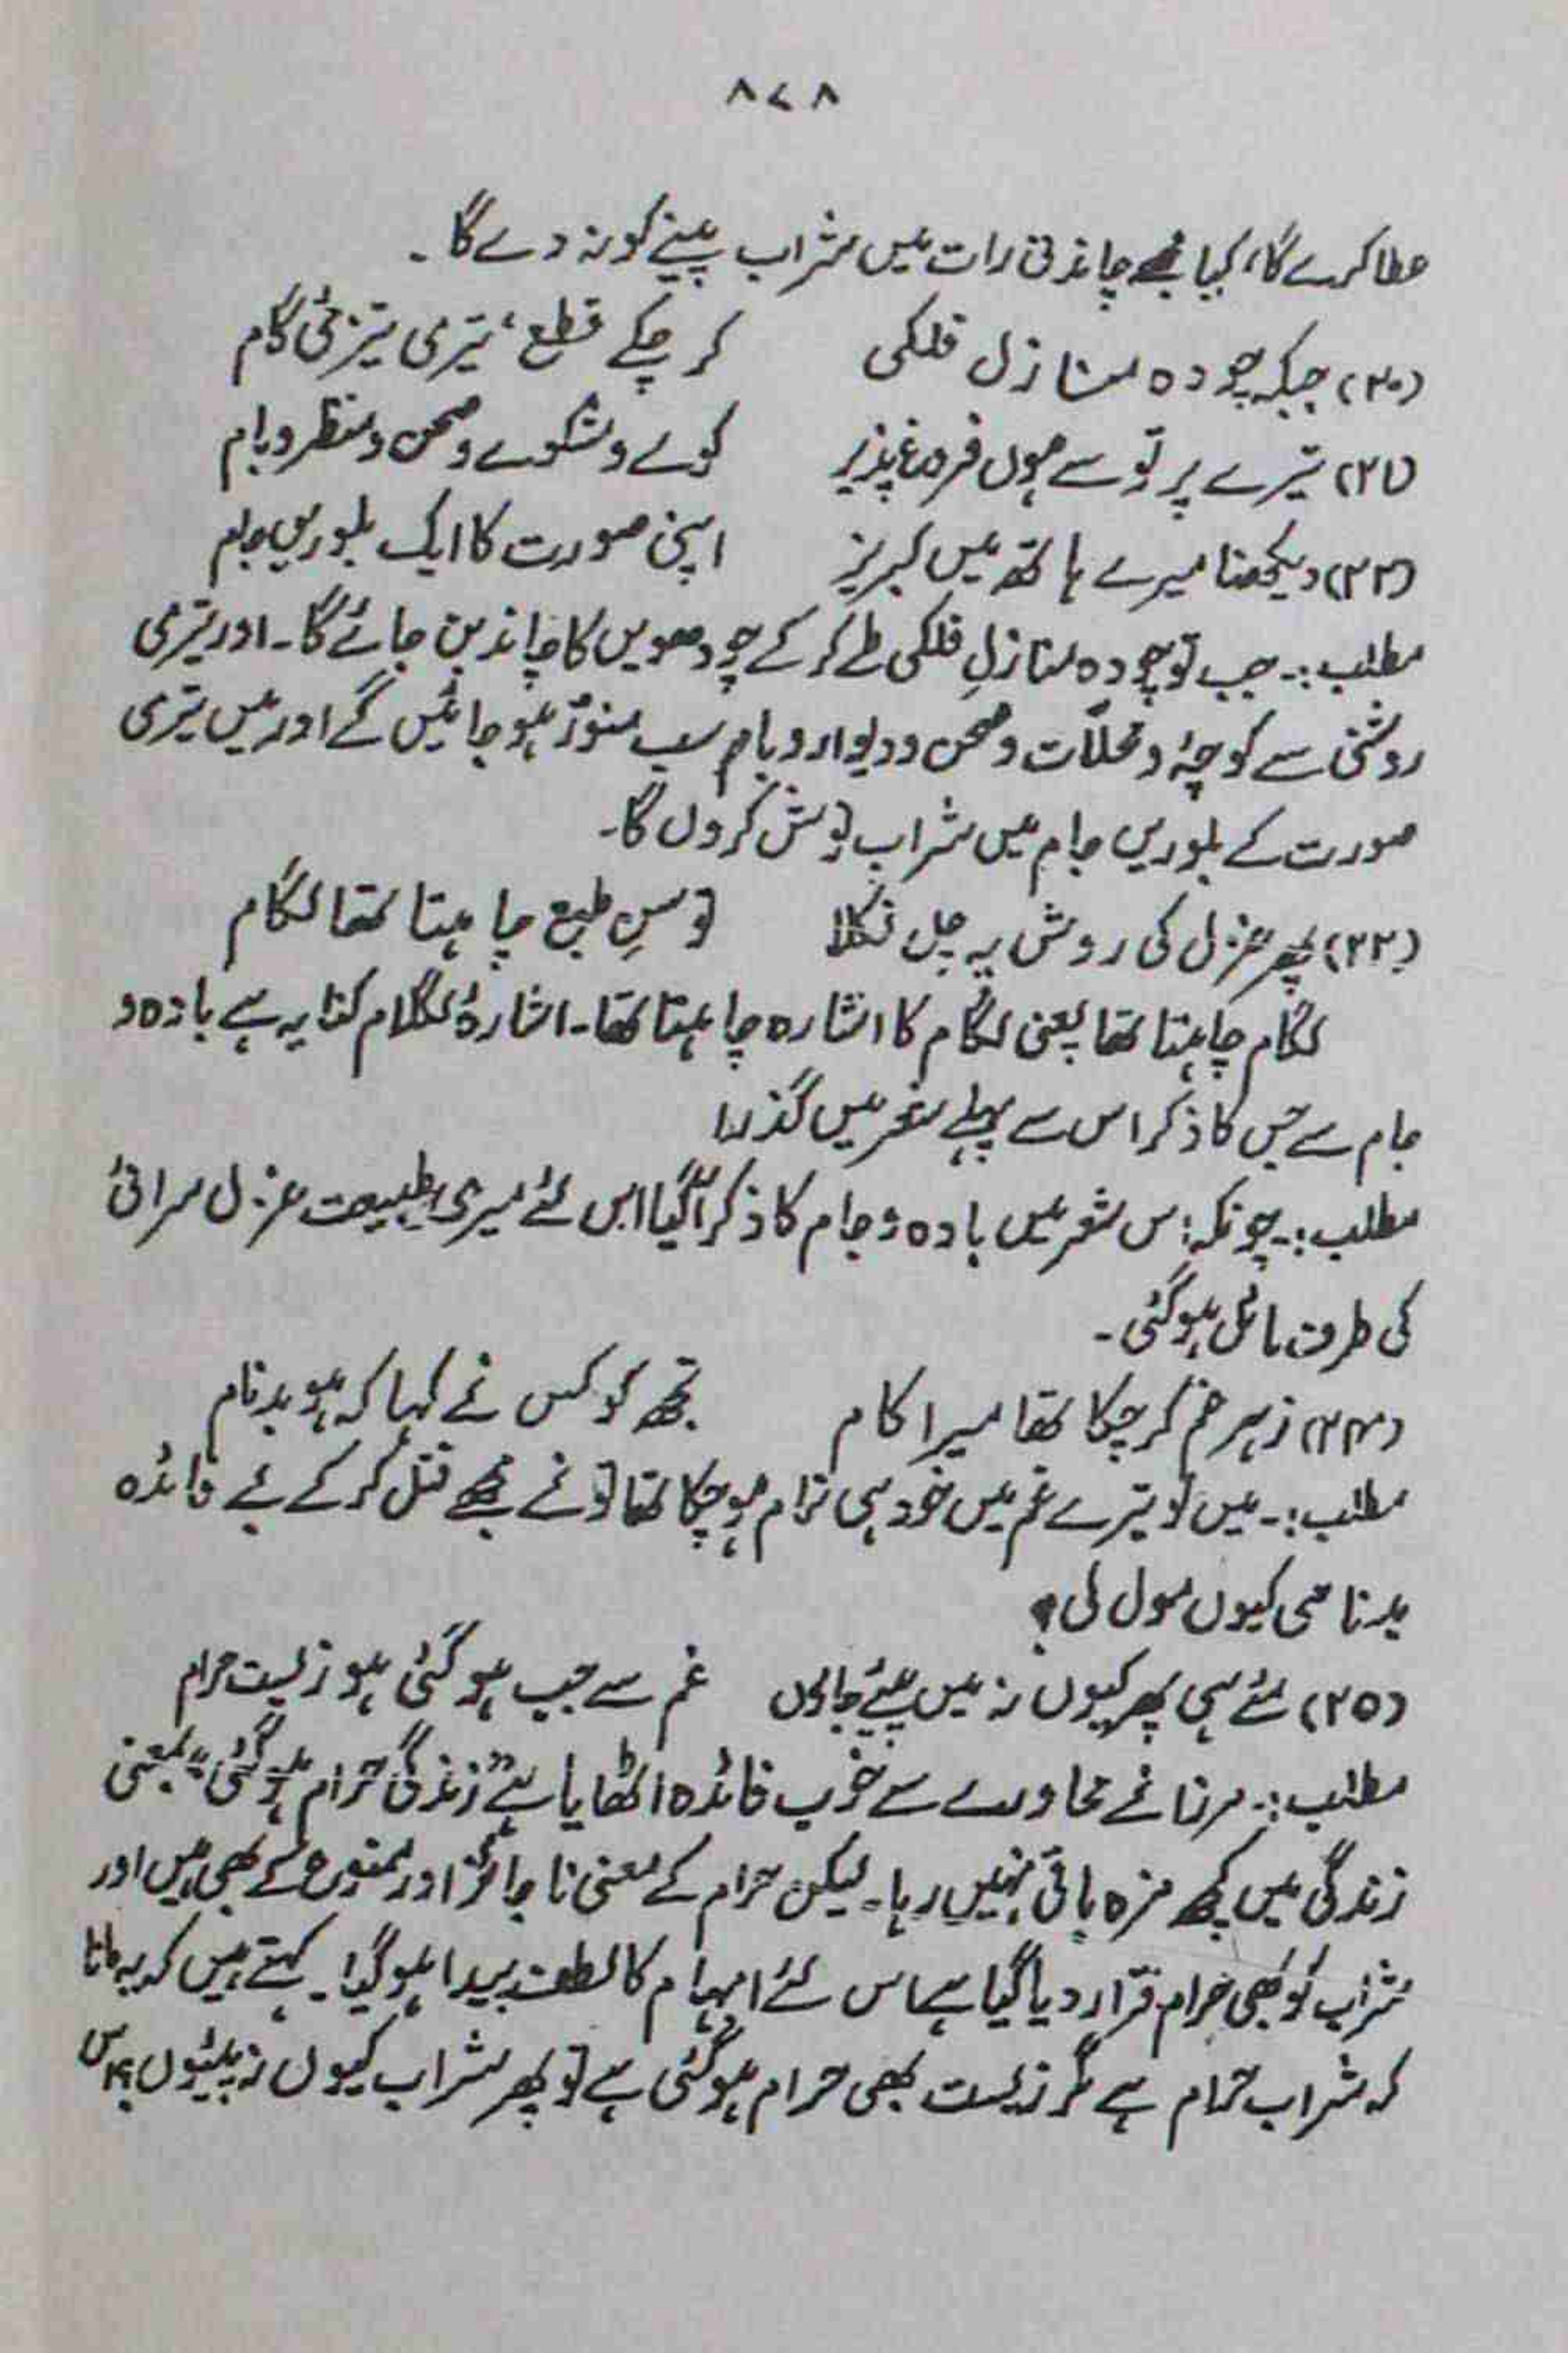 ۸۷۸
عطا کرے گا، کیا مجھے چاندنی رات میں شراب پینے کو نہ دے گا۔
(۲۰) جبکہ چودہ منازل فلکی کر چکے قطع، تیری تیزئی گام
(۲۱) تیرے پرتو سے ہوں فروغ پذیر کوے و مشکوے و صحن و منظر و بام
(۲۲) دیکھنا میرے ہاتھ میں لبریز اپنی صورت کا ایک بلوریں جام
مطلب:۔ جب تو چودہ منازلِ فلکی طے کر کے چودھویں کا چاند بن جائے گا۔ اور تیری
روشنی سے کوچۂ و محلّات و صحن و دیوار و بام سب منوّر ہو جائیں گے اور میں تیری
صورت کے بلوریں جام میں شراب نوش کروں گا۔
(۲۳) پھر غزل کی روش پہ چل نکلا توسنِ طبع چاہتا تھا لگام
لگام چاہتا تھا یعنی لگام کا اشارہ چاہتا تھا۔ اشارۂ لگام کنایہ ہے بادہ و
جام سے جس کا ذکر اس سے پہلے شعر میں گذرا
مطلب:۔ چونکہ اس شعر میں بادہ و جام کا ذکر آ گیا اس لئے میری طبیعت غزل سرائی
کی طرف مائل ہو گئی۔
(۲۴) زہر غم کر چکا تھا میرا کام تجھ کو کس نے کہا کہ ہو بدنام
مطلب:۔ میں تو تیرے غم میں خود ہی تمام ہو چکا تھا تو نے مجھے قتل کر کے بے فائدہ
بدنامی کیوں مول لی؟
(۲۵) مئے ہی پھر کیوں نہ میں پئے جاؤں غم سے جب ہو گئی ہو زیست حرام
مطلب:۔ مرزا نے محاورے سے خوب فائدہ اٹھایا ہے "زندگی حرام ہو گئی" بمعنی
زندگی میں کچھ مزہ باقی نہیں رہا۔ لیکن حرام کے معنی ناجائز اور ممنوع کے بھی ہیں اور
شراب کو بھی حرام قرار دیا گیا ہے اس لئے ابہام کا لطف پیدا ہو گیا۔ کہتے ہیں کہ یہ مانا
کہ شراب حرام ہے مگر زیست بھی حرام ہو گئی ہے تو پھر شراب کیوں نہ پیئوں؟ اس